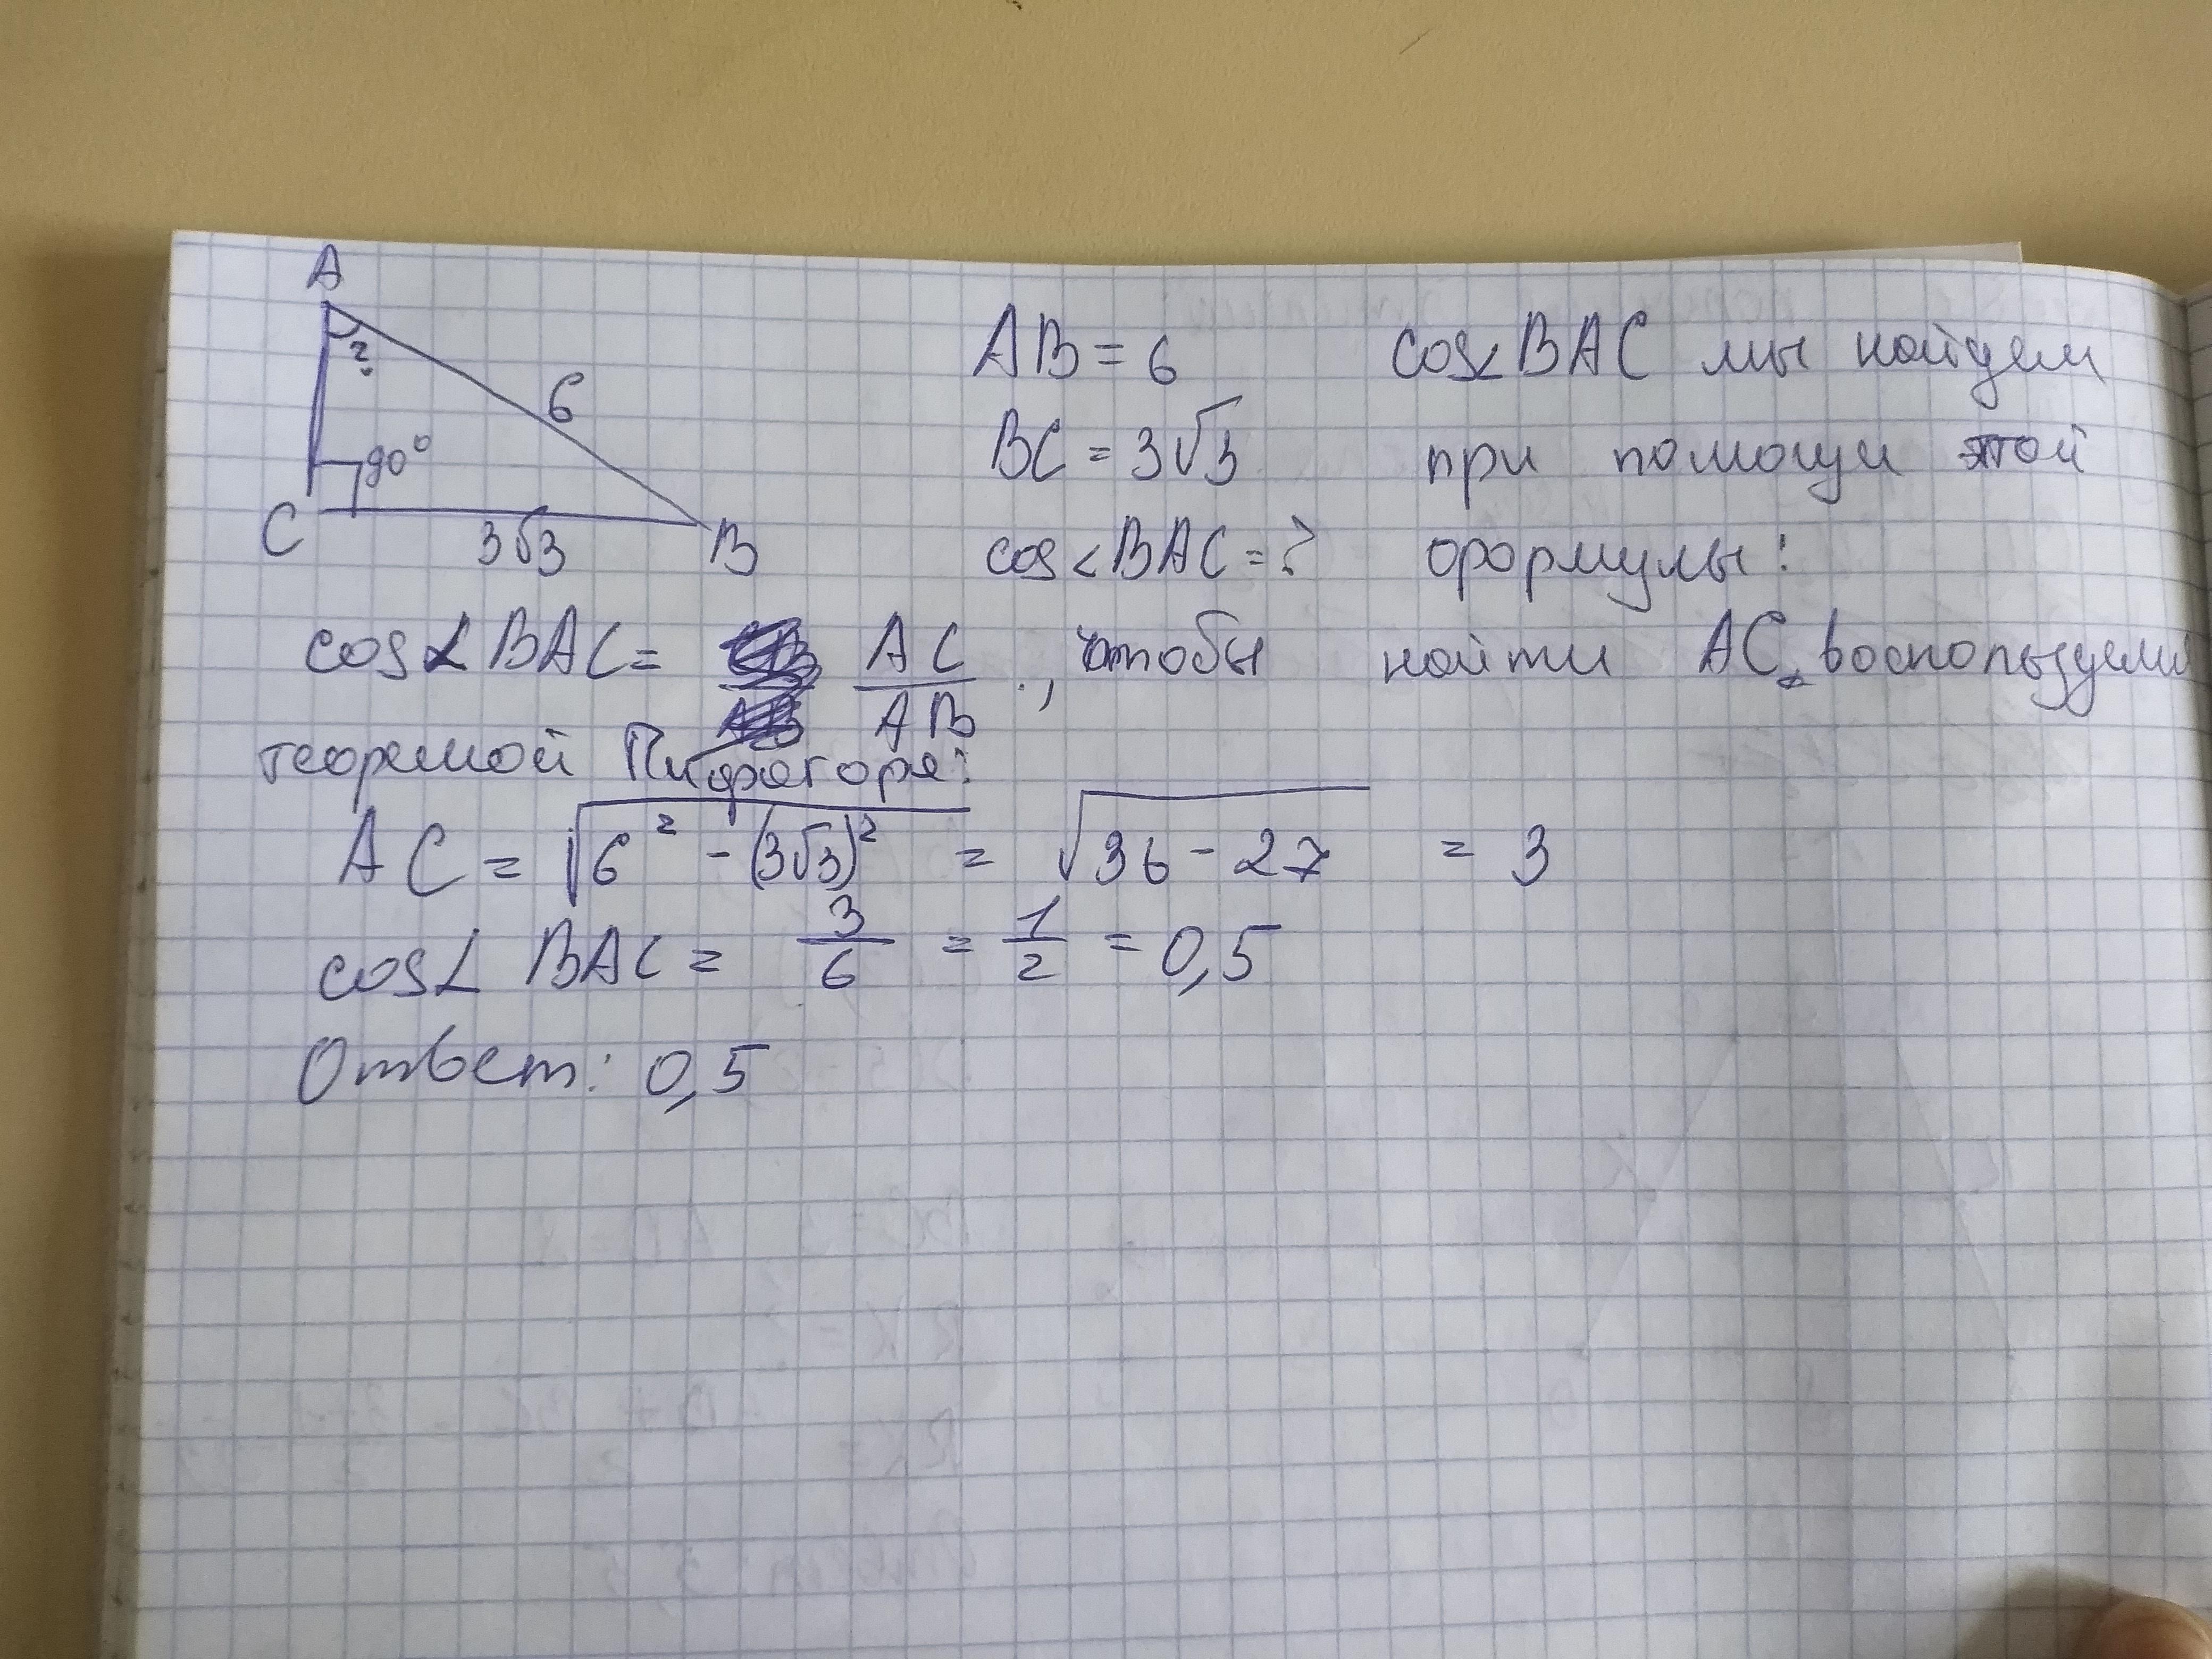 A
?
6
90°
C
3√3
B
AB = 6
BC = 3√3
cos<BAC = ?
cos∠BAC мы найдем
при помощи этой
формулы:
cos∠BAC = AC/AB , чтобы найти AC воспользуемся
теоремой Пифагора:
AC = √(6² - (3√3)²) = √(36 - 27) = 3
cos∠ BAC = 3/6 = 1/2 = 0,5
Ответ: 0,5